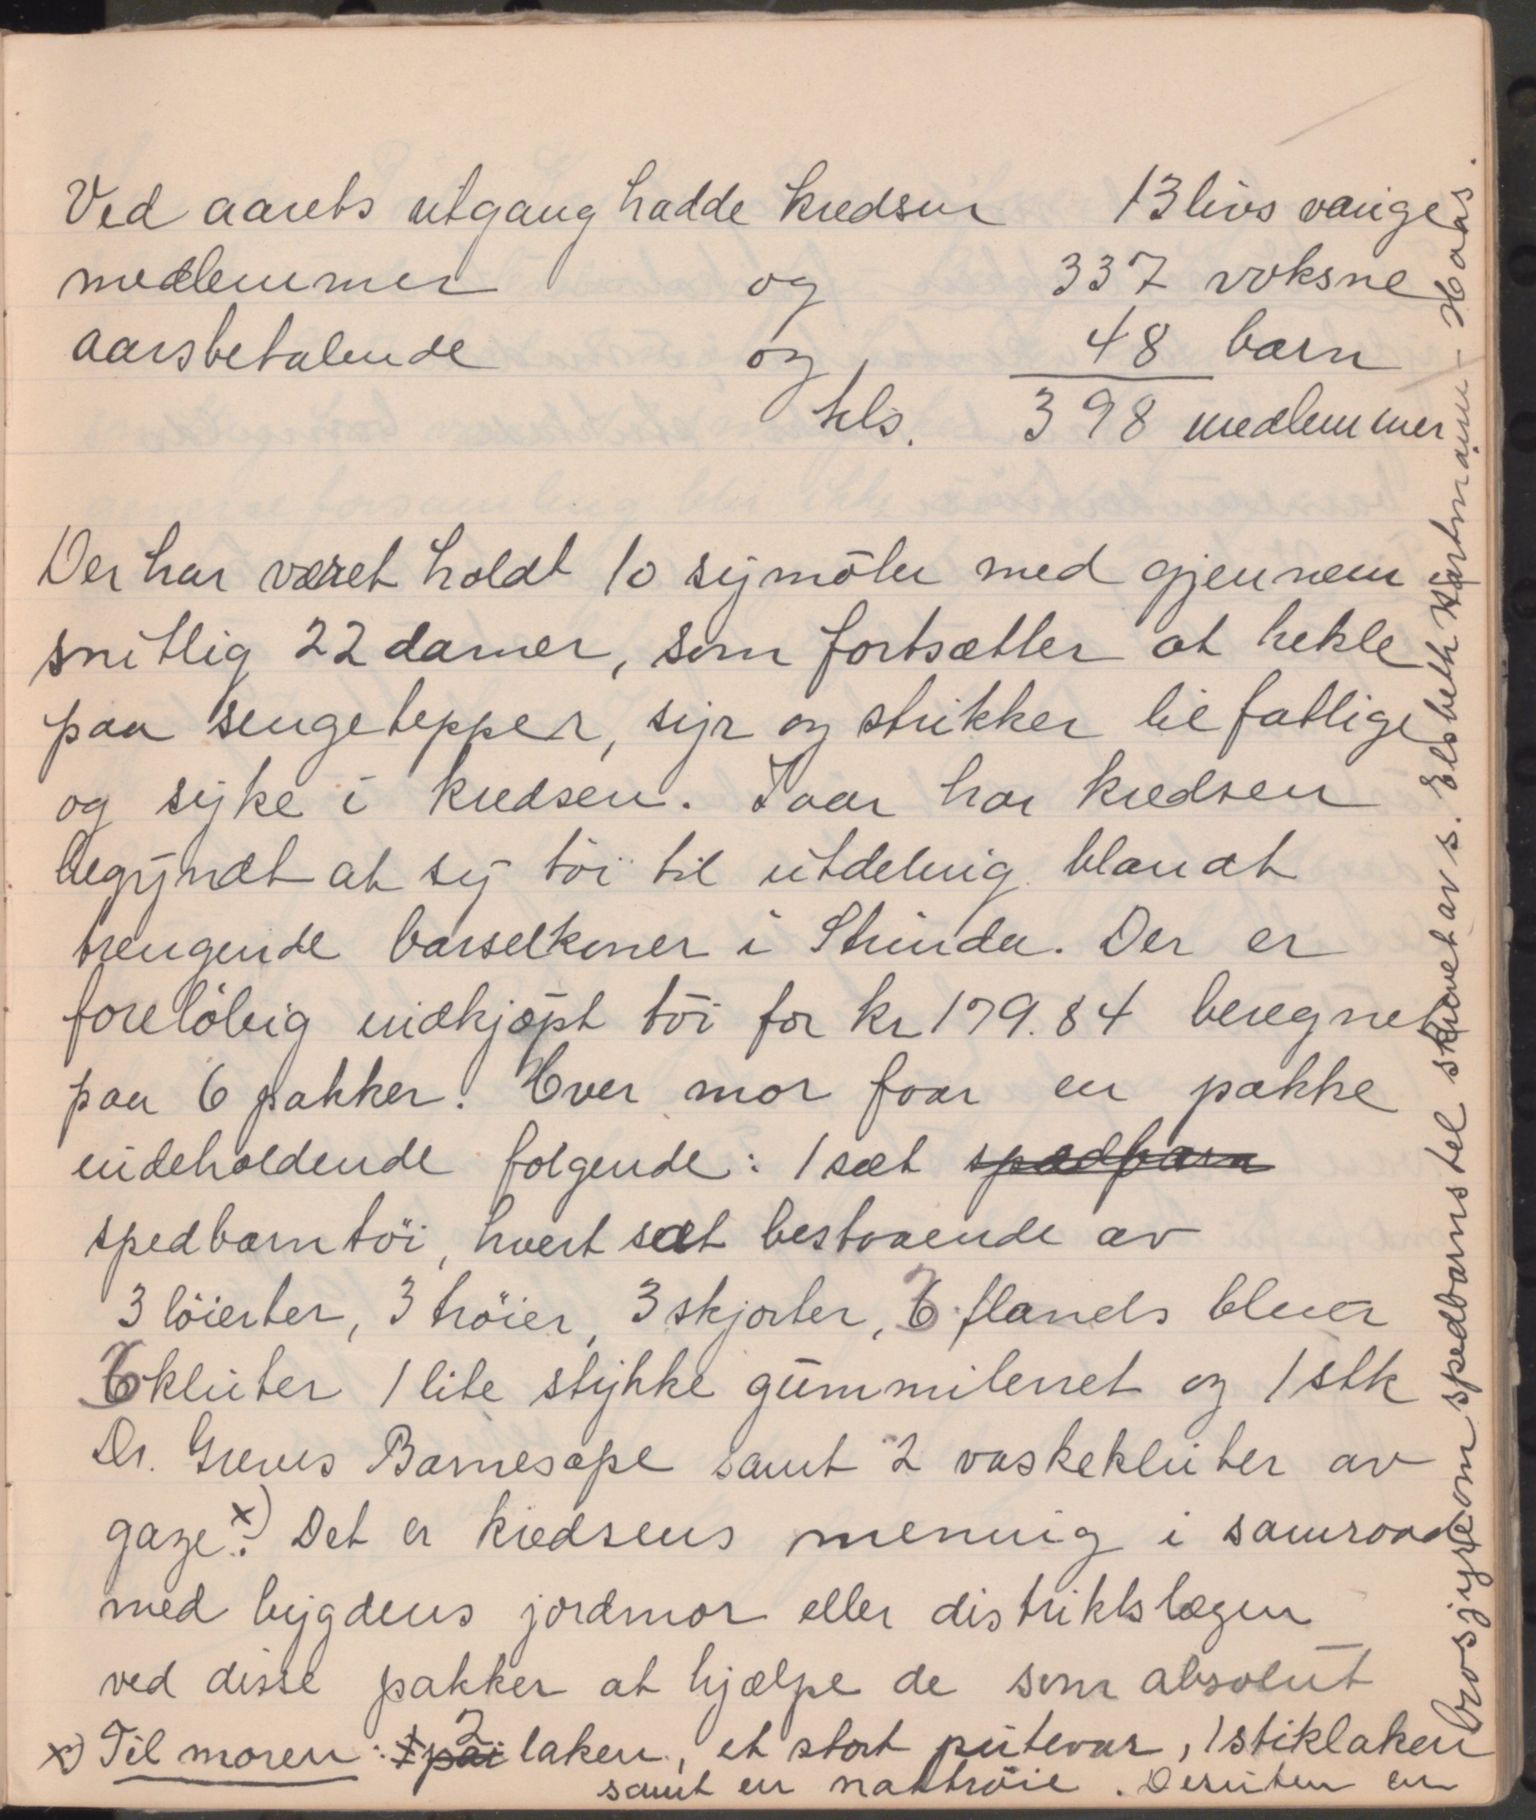 Ved aarets utgang hadde kredsen 13 livs varige
medlemmer og 337 voksne
aarsbetalende og 48 barn
tils. 398 medlemmer
Der har været holdt 10 symöter med gjennem
snitlig 22 damer, som fortsætter at hekle
paa sengetepper, syr og strikker til fattige
og syke i kredsen. Iaar har kredsen
begyndt at sy töi til utdeling blandt
trengende barselkoner i Strinda. Der er
forelöbig indkjöpt töi for kr 179.84 beregnet
paa 6 pakker. Hver mor faar en pakke
indeholdende følgende: 1 sæt spædbarn
spedbarntöi, hvert sæt bestaaende av
3 löierter, 3 tröier, 3 skjorter, 6 flanels bleier
6 kluter 1 lite stykke gummilerret og 1 stk
Dr. Greves Barnesape samt 2 vaskekluter av
gaze x). Det er kredsens mening i samraad
med bygdens jordmor eller distriktslægen
ved disse pakker at hjælpe de som absolut
x) Til moren: 1 par 2 laken, et stort putevar, 1 stiklaken
samt en nattröie. Desuten en
brosjyre om spedbarnstel skrevet av s. Elsbeth Hartmann-Haas.